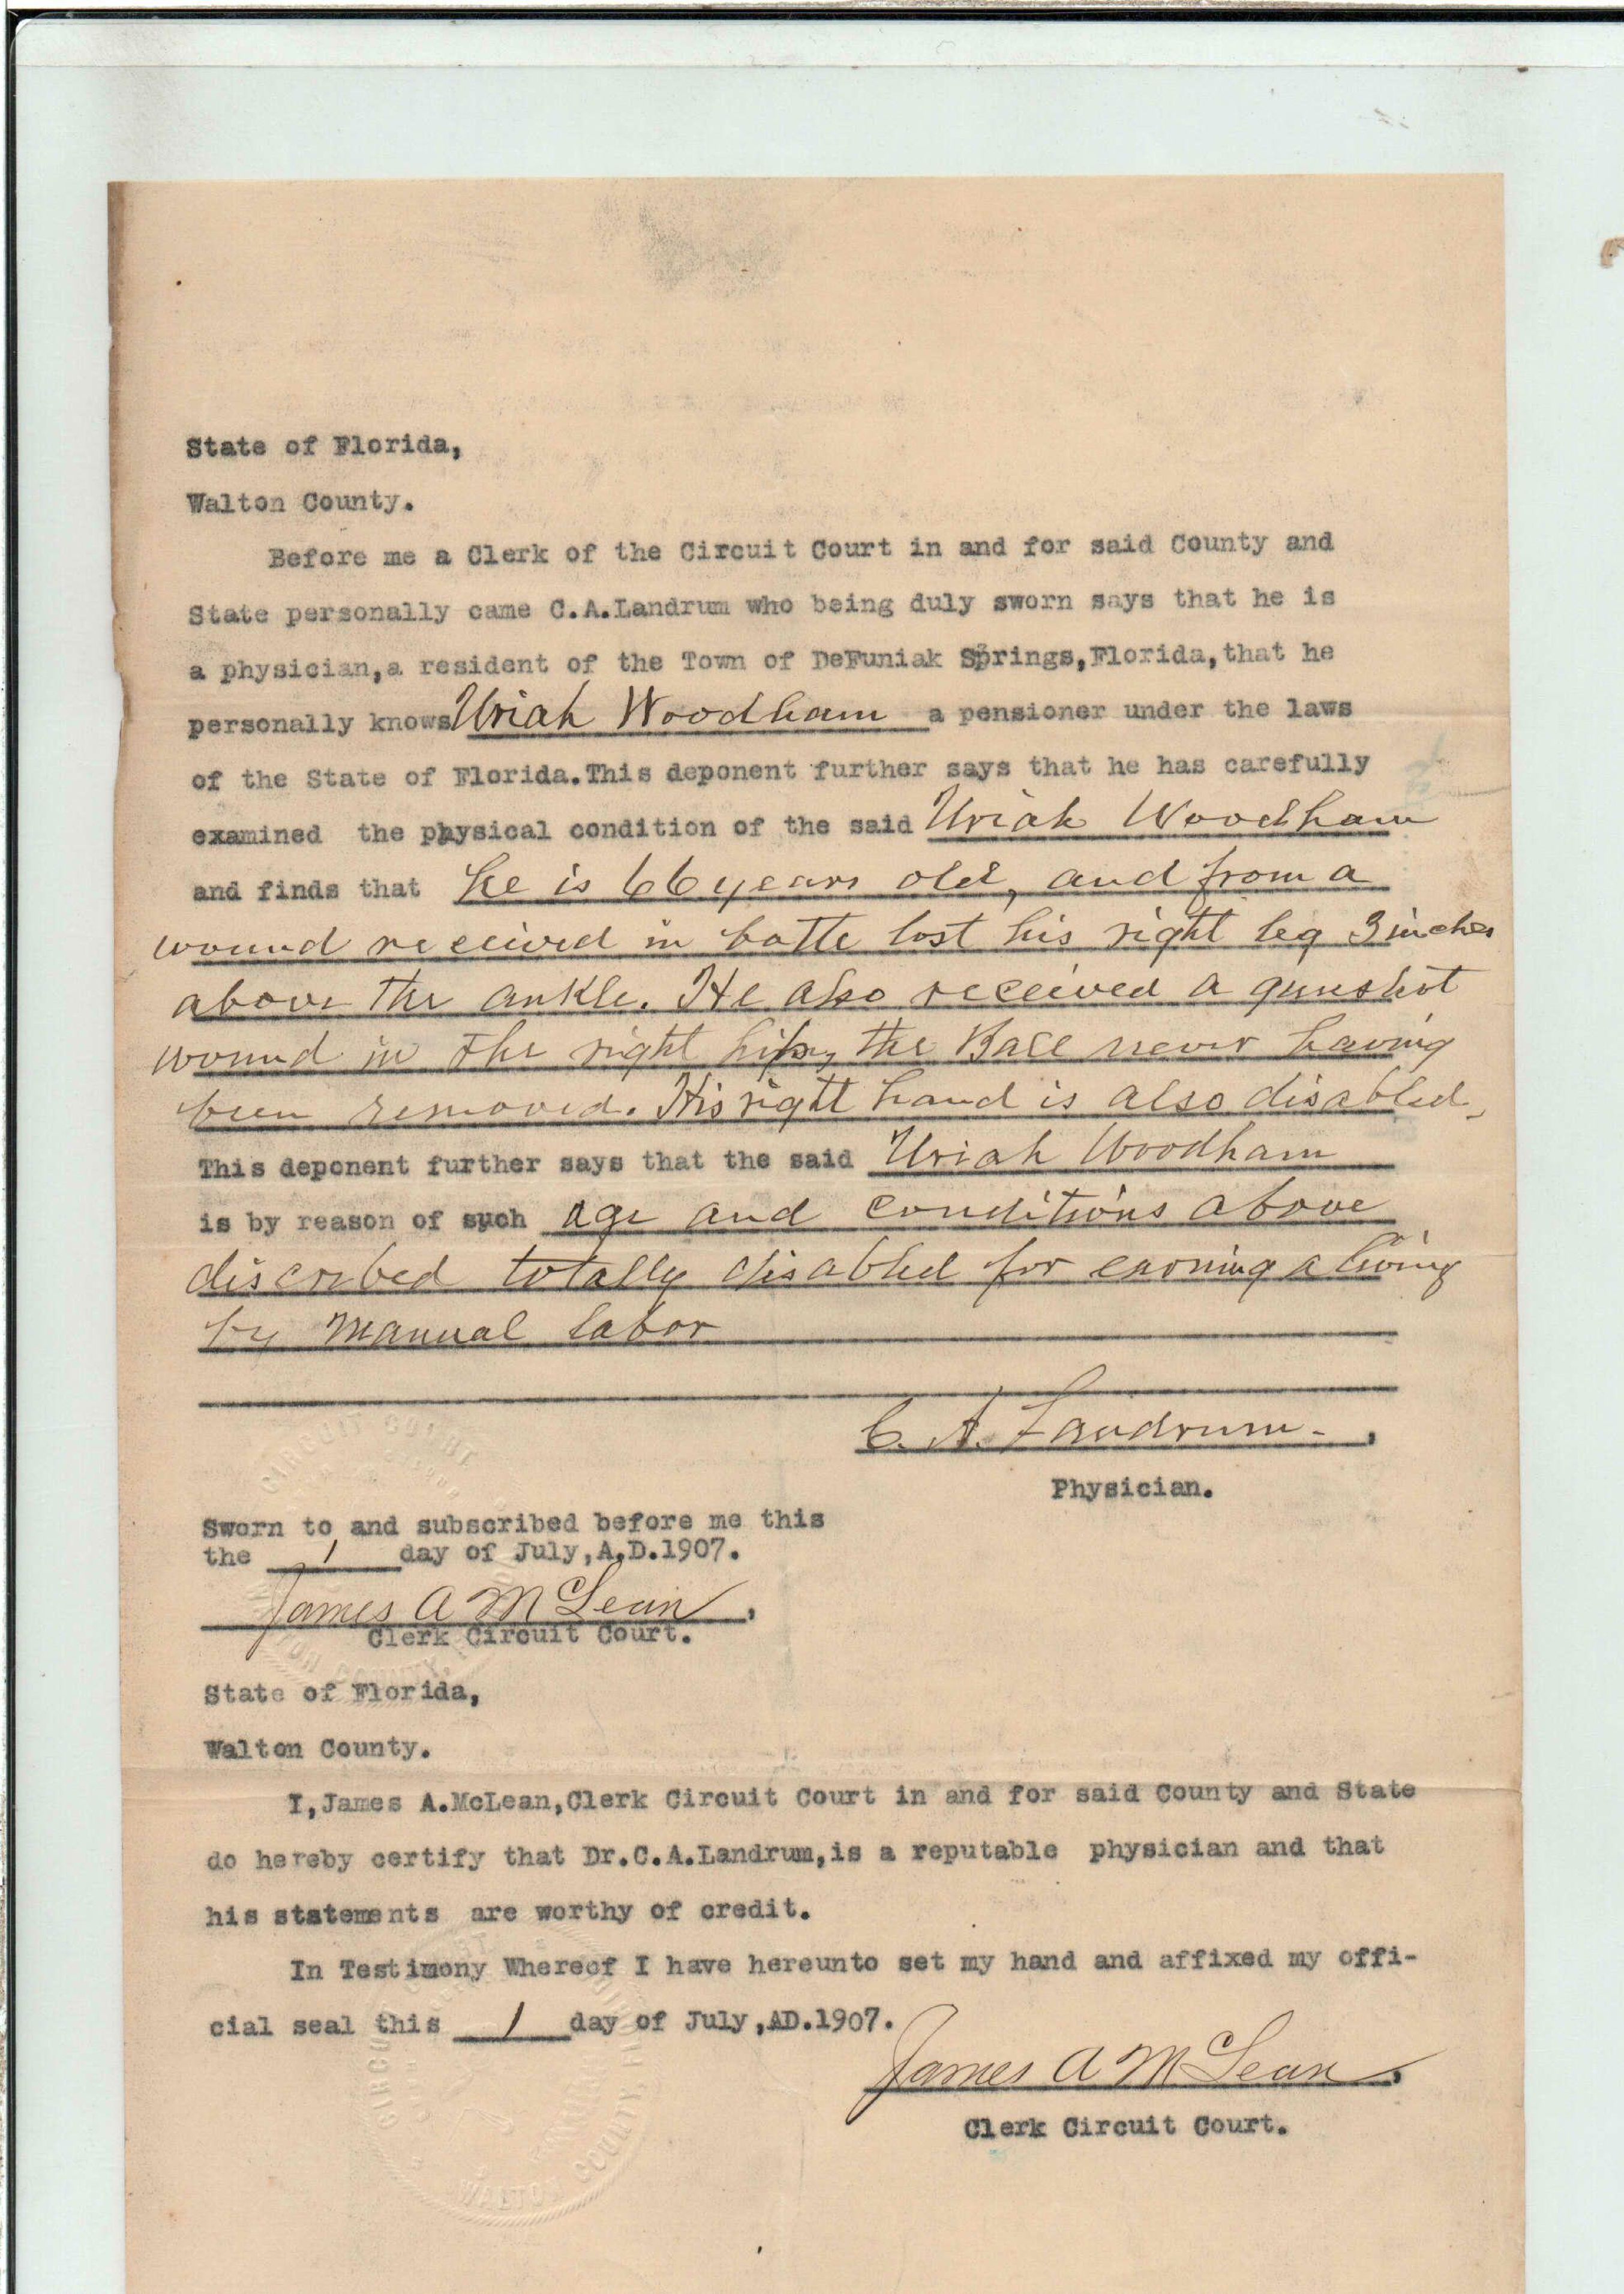 State of Florida,
Walton County.
Before me a Clerk of the Circuit Court in and for said County and
State personally came C.A.Landrum who being duly sworn says that he is
a physician,a resident of the Town of DeFuniak Springs,Florida,that he
personally knows Uriah Woodham a pensioner under the laws
of the State of Florida.This deponent further says that he has carefully
examined the physical condition of the said Uriah Woodham
and finds that he is 66 years old, and from a
wound received in battle lost his right leg 3 inches
above the ankle. He also received a gunshot
wound in the right hip, the Ball never having
been removed. His right hand is also disabled.
This deponent further says that the said Uriah Woodham
is by reason of such age and conditions above
discribed totally disabled for earning a living
by manual labor
C. A. Landrum.
Physician.
Sworn to and subscribed before me this
the 1 day of July,A.D.1907.
James A McLean,
Clerk Circuit Court.
State of Florida,
Walton County.
I,James A.McLean,Clerk Circuit Court in and for said County and State
do hereby certify that Dr.C.A.Landrum,is a reputable physician and that
his statements are worthy of credit.
In Testimony Whereof I have hereunto set my hand and affixed my offi-
cial seal this 1 day of July,AD.1907.
James A McLean,
Clerk Circuit Court.
CIRCUIT COURT
WALTON COUNTY